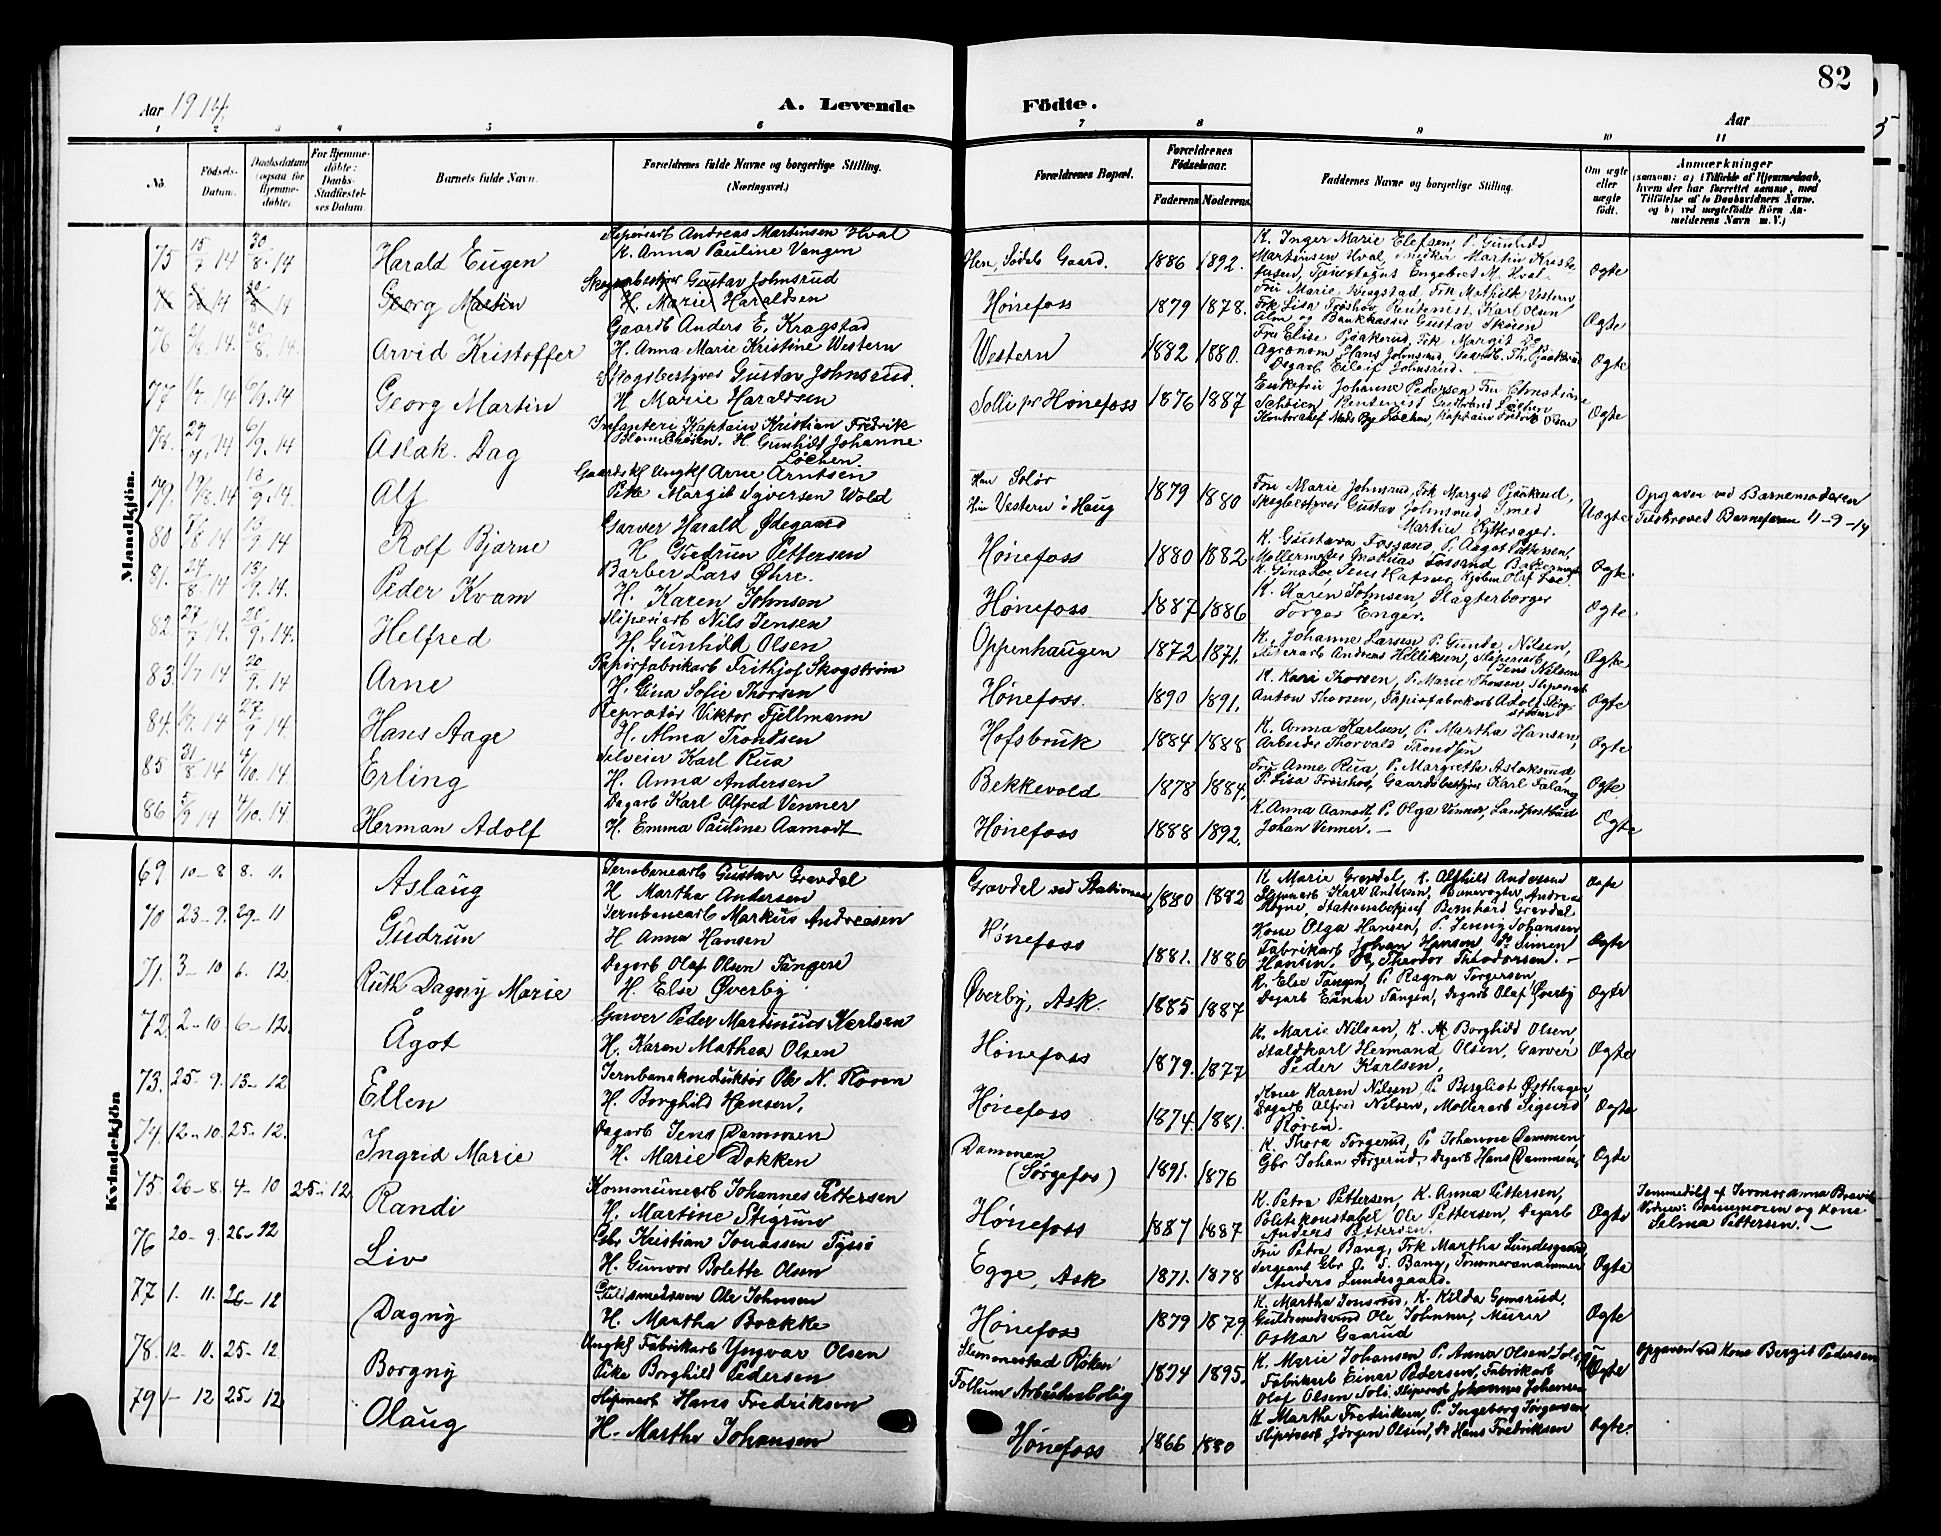 82
Aar 1914.
A. Levende Födte.
Aar
1 2 3 4 5 6 7 8 9 10 11
No.
Födsels-Datum.
Daabsdatum (ogsaa for Hjemme-döbte).
For Hjemme-döbte: Daabs-Stadfæstel-ses Datum.
Barnets fulde Navn.
Forældrenes fulde Navne og borgerlige Stilling. (Næringsvei.)
Forældrenes Bopæl.
Forældrenes Födselsaar.
Faderens Moderens
Faddernes Navne og borgerlige Stilling.
Om ægte eller uægte födt.
Anmærkninger
(saasom: a) i Tilfælde af Hjemmedaab, hvem der har forrettet samme, med Tilföielse af to Daabsvidners Navne, og b) ved uægtefödte Börn An-melderens Navn m. V.)
Mandkjön.
75 15/7 14 30/8. 14 Harald Eugen
Sliperiarb Andreas Martinsen Hval
K. Anna Pauline Vangen
Hen, Sødals Gaard. 1886 1892.
K. Inger Marie Elefsen, P. Gunhild
Martinsen Hval, Smedker Martin
Engebret M. Hval.
Ægte
Georg Martin
Skogsbestyrer Gustav Johnsrud
H. Marie Haraldsen
Hønefoss 1879 1878.
Fru Marie Kragstad, Frk Mathilde Western,
Frk Lisa Frøshog, Rentenist Karl Olsen
Alm og Bankkasser Gustav Skøien
Ægte
76 14. 30/8. 14. Arvid Kristoffer
Gaardb Anders E. Kragstad
H. Anna Marie Kristine Western
Western 1882 1880.
Fru Elise Pjaakerud, Frk Margit Do
Agronom Hans Johnsrud, Gaardb. Th. Pjaakerud
Dagarb Eileif Johnsrud.
Ægte
77 14 6/9. 14 Georg Martin
Skogsbestyrer Gustav Johnsrud.
H Marie Haraldsen
Solli pr Hønefoss 1876 1887
Enkefru Johanne Pedersen Fru Christiane
Schøien, Rentenist Løchen
Kontorchef Mads Løchen, Kaptain Fredrik Olsen
Ægte
78. 27/7. 14 6/9. 14 Aslak. Dag
Infanteri Kaptain Kristian Fredrik
H. Gunhild Johanne
Løchen.
79. 19/8. 14 13/9. 14. Alf
Gaardskf Ungkf Arne Arntsen
Pike Margit Syversen Wold
Han Solør
Hun Vestern i Haug 1879 1880
Fru Marie Johnsrud, Frk Margit Pjaakrud,
Skogbestyrer Gustav Johnsrud Smed
Martin Rytterager.
Uægte
Opgaven ved Barnemoderen
Tilskrevet Barnefaren 11-9-14
80 14 13/9. 14 Rolf Bjarne
Garver Harald Ødegaard
H Gudrun Pettersen
Hønefoss 1880 1882
K. Gustava Fossand P. Aagot Pettersen,
Møllermester Fossand
Ægte.
81. 24/8. 14 13/9. 14. Peder Kvam
Barber Lars Øhre.
H. Karen Johnsen
Hønefoss 1887 1886
K. Karen Johnsen, Slagterborger
Torger Enger.
Ægte
82 27/7 14. 20/9. 14. Helfred
Sliperiarb Nils Jensen
H. Gunhild Olsen
Oppenhaugen 1872 1871.
K. Johanne Larsen P. Gunda Nilsen,
Sliperarb Andreas Helliksen, Sliperiarb
Jens Nilsen
Ægte
83. 14 20/9. 14 Arne
Papirfabrikarb Frithjof Skogstrøm
H. Gina Sofie Thorsen
Hønefoss. 1890 1891.
K. Kari Thorsen, P. Marie Thorsen Sliperiarb
Anton Thorsen, Papirfabrikarb Adolf Skog-
strøm
Ægte
84. 14 27/9 14. Hans Aage
Reparatør Viktor Fjellmann
H. Alma Trondsen
Hofsbruk 1884 1888
K. Anna Karlsen, P. Martha Hansen,
Arbeider Thorvald Trondsen
Ægte
85 31/8. 14 4/10. 14. Erling
Karl Rua
H. Anna Andersen
Bekkevold 1878 1884.
Fru Anne Rua, P. Margrethe Aslaksrud
P. Lisa Frøishov, Gaardsbestyrer Karl
Ægte
86 5/9 14 4/10. 14 Herman Adolf
Dagarb Karl Alfred Venner
H. Emma Pauline Aamodt
Hønefoss 1888 1892.
K. Anna Aamodt, P. Olga Venner, Landpostbud
Johan Venner. —
Ægte
Kvindekjön
69 10-8 8. 11. Aslaug
Jernbanearb Gustav Gravdal
H Martha Andersen
Gravdal ved Stationen 1880 1882
K Marie Gravdal, K. Alfhild Andersen
Sliperiarb Karl Andersen, Banevogter Andreas
Stationsbetjent Bernhard Gravdal
Ægte
70 23-9. 29-11 Gudrun
Jernbanearb Markus Andreasen
H Anna Hansen
Hønefoss 1881. 1886
Kone Olga Hansen, P. Jenny Johansen
Fabrikarb Johan Hansen Do Simen
Hansen. Do, Thorvor Theodorsen. —
Ægte
71. 3-10 6. 12. Ruth Dagny Marie
Dagarb Olaf Olsen Tangere
H. Else Øverby
Øverby, Ask. 1885 1887
K. Else Tangen, P. Ragna Torgersen,
Dagarb Einar Tangen, Dagarb Olaf Øverby
Ægte
72. 2-10. 6-12. Ågot
Garver Peder Martinius Karlsen
H. Karen Mathea Olsen
Hønefoss 1879. 1877
K. Marie Nilsen, K. M Borghild Olsen,
Staldkarl Hermand Olsen, Garver
Peder Karlsen,
Ægte
73. 25-9. 13-12 Ellen
Jernbanekonduktør Ole N. Roven
H. Borghild Hansen.
Hønefoss 1874. 1881.
Kone Karen Nilsen, P. Bergliot Østhagen,
Dagarb Alfred Nelsen, Møllerarb Sigurd
Røren.
Ægte
74. 12-10. 25-12. Ingrid Marie
Dagarb Jens Dammen
H. Marie Dokken
Dammen
(Sørgefos) 1891. 1876
K. Thora Torgerud, P. Johanne Dammen,
Gbr Johan Torgerud, Dagarb Hans Dammen,
Ægte
75 26-8. 4-10 25-12. Randi
Kommunearb Johannes Pettersen
H. Martine Stigrun
Hønefoss 1887 1887
K. Petra Pettersen, K. Anna Pettersen,
Politikonstabel Ole Pettersen, Dagarb
Anders Pettersen.
Ægte
Jemmedøbt af Jormor Anna
Vidner: Barnemoren og Kone
Selma Pettersen. —
76 20-9. 26-12 Liv
Gbr Kristian Jonassen Tyssi
H. Gunvor Bolette Olsen
Egge, Ask 1871. 1878
Fru Petra Bang, Frk Martha Lundesgaard,
Sergeant Gbr J. S. Bang, Tømmermaaler
Anders Lundesgaard.
Ægte
77 1. 11. 26-12 Dagny
Guldsmedsven Ole Johnsen
H. Martha Brække
Hønefoss 1879 1879.
K. Martha Jonsrud, K. Kilda Gomsrud.
Guldsmedsvend Ole Johnsen, Murer
Oskar Gaarud
Ægte
78. 12-11. 25-12 Borgny
Ungkf Fabrikarb Yngvar Olsen
Pike Borghild Pedersen
Slemmestad Røken
Follum Arbeiderbolig 1874 1895.
K. Marie Johansen, P. Anna Olsen Soli,
Fabrikarb Einar Pedersen, Fabrikarb
Olaf Olsen Soli, Sliperarb Johannes Johansen
Uægte
Opgaven ved Kone Bergit Pedersen
79 1-12 25-12 Olaug
Sliperiarb Hans Fredriksen
H. Martha Johansen
Hønefoss 1866 1880
K. Martha Fredriksen, P. Ingeborg Jørgensen
Sliperarb Jørgen Olsen, Do Hans Fredriksen
Ægte.